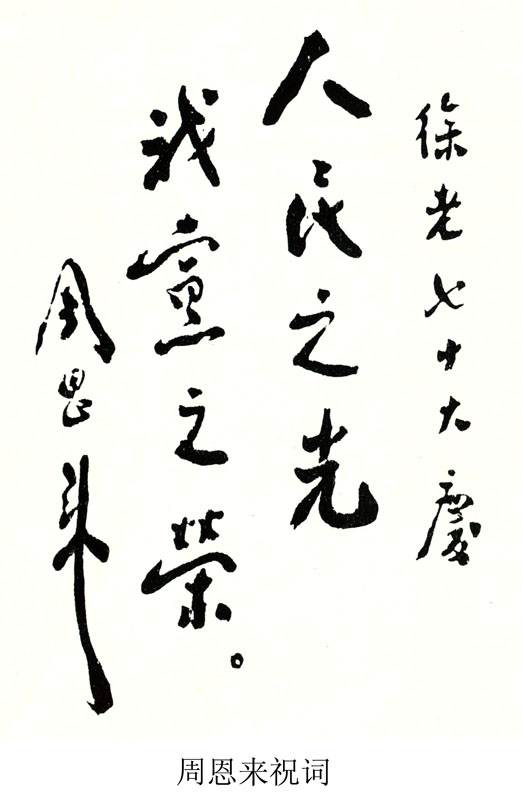 徐老七十大慶
人民之光
我黨之榮。
周恩来
周恩来祝词